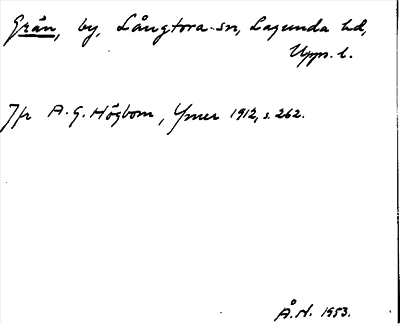 Grän, by, Långtora sn, Lagunda hd,
Upps. l.
Jfr A. G. Högbom, Ymer 1912, s. 262.
Å. N. 1953.